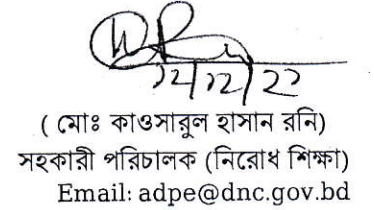 ১২/১২/২২
( মোঃ কাওসারুল হাসান রনি)
সহকারী পরিচালক (নিরোধ শিক্ষা)
Email: adpe@dnc.gov.bd